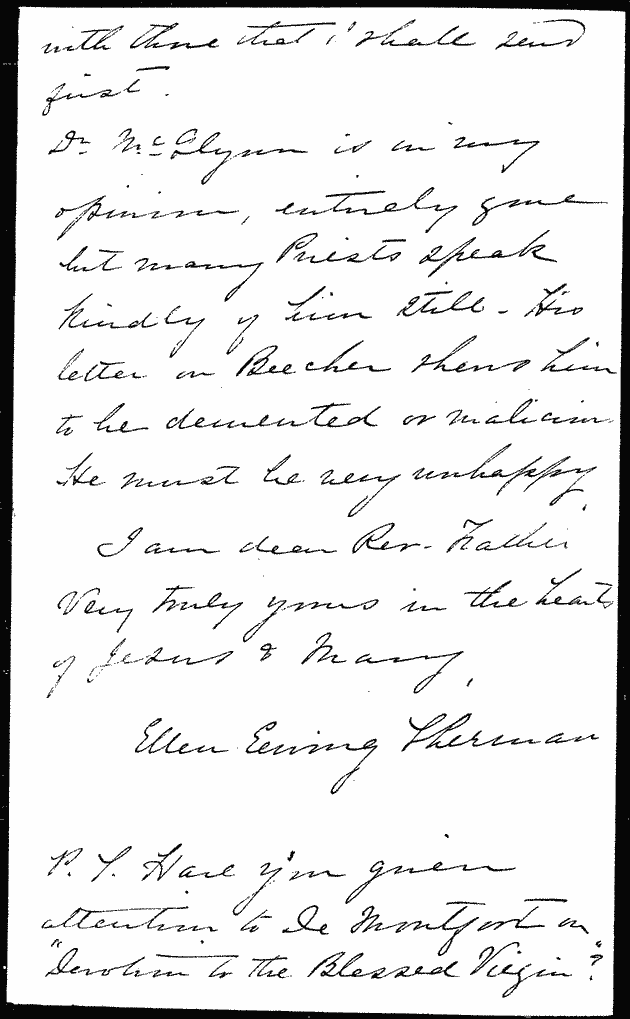 with those that I shall send
first.
Dr. McGlynn is in my
opinion, entirely gone
but many Priests speak
kindly of him still - His
letter on Beecher shews him
to be demented or malicious
He must be very unhappy,
I am dear Rev. Father
Very truly yours in the hearts
of Jesus & Mary,
Ellen Ewing Sherman
P.S. Have you given
attention to De Montfort on
"Devotion to the Blessed Virgin"?